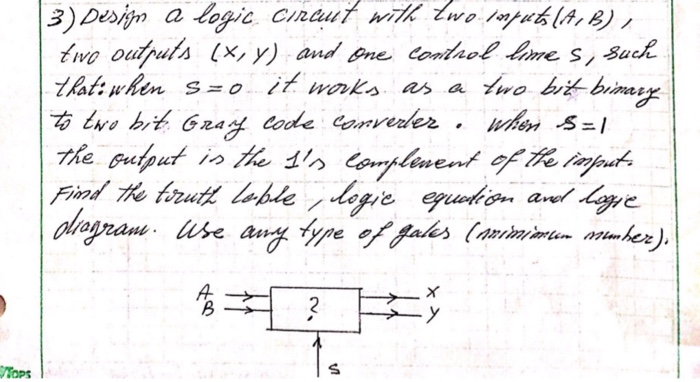 3) Design a logic circuit with two inputs (A, B),
two outputs (X, Y) and one control line S, such
that: when S=0 it works as a two bit binary
to two bit Gray code converter. when S=1
the output is the 1's complement of the input.
Find the truth table, logic equation and logic
diagram. Use any type of gates (minimum number).
A
B
?
X
Y
S
TOPS